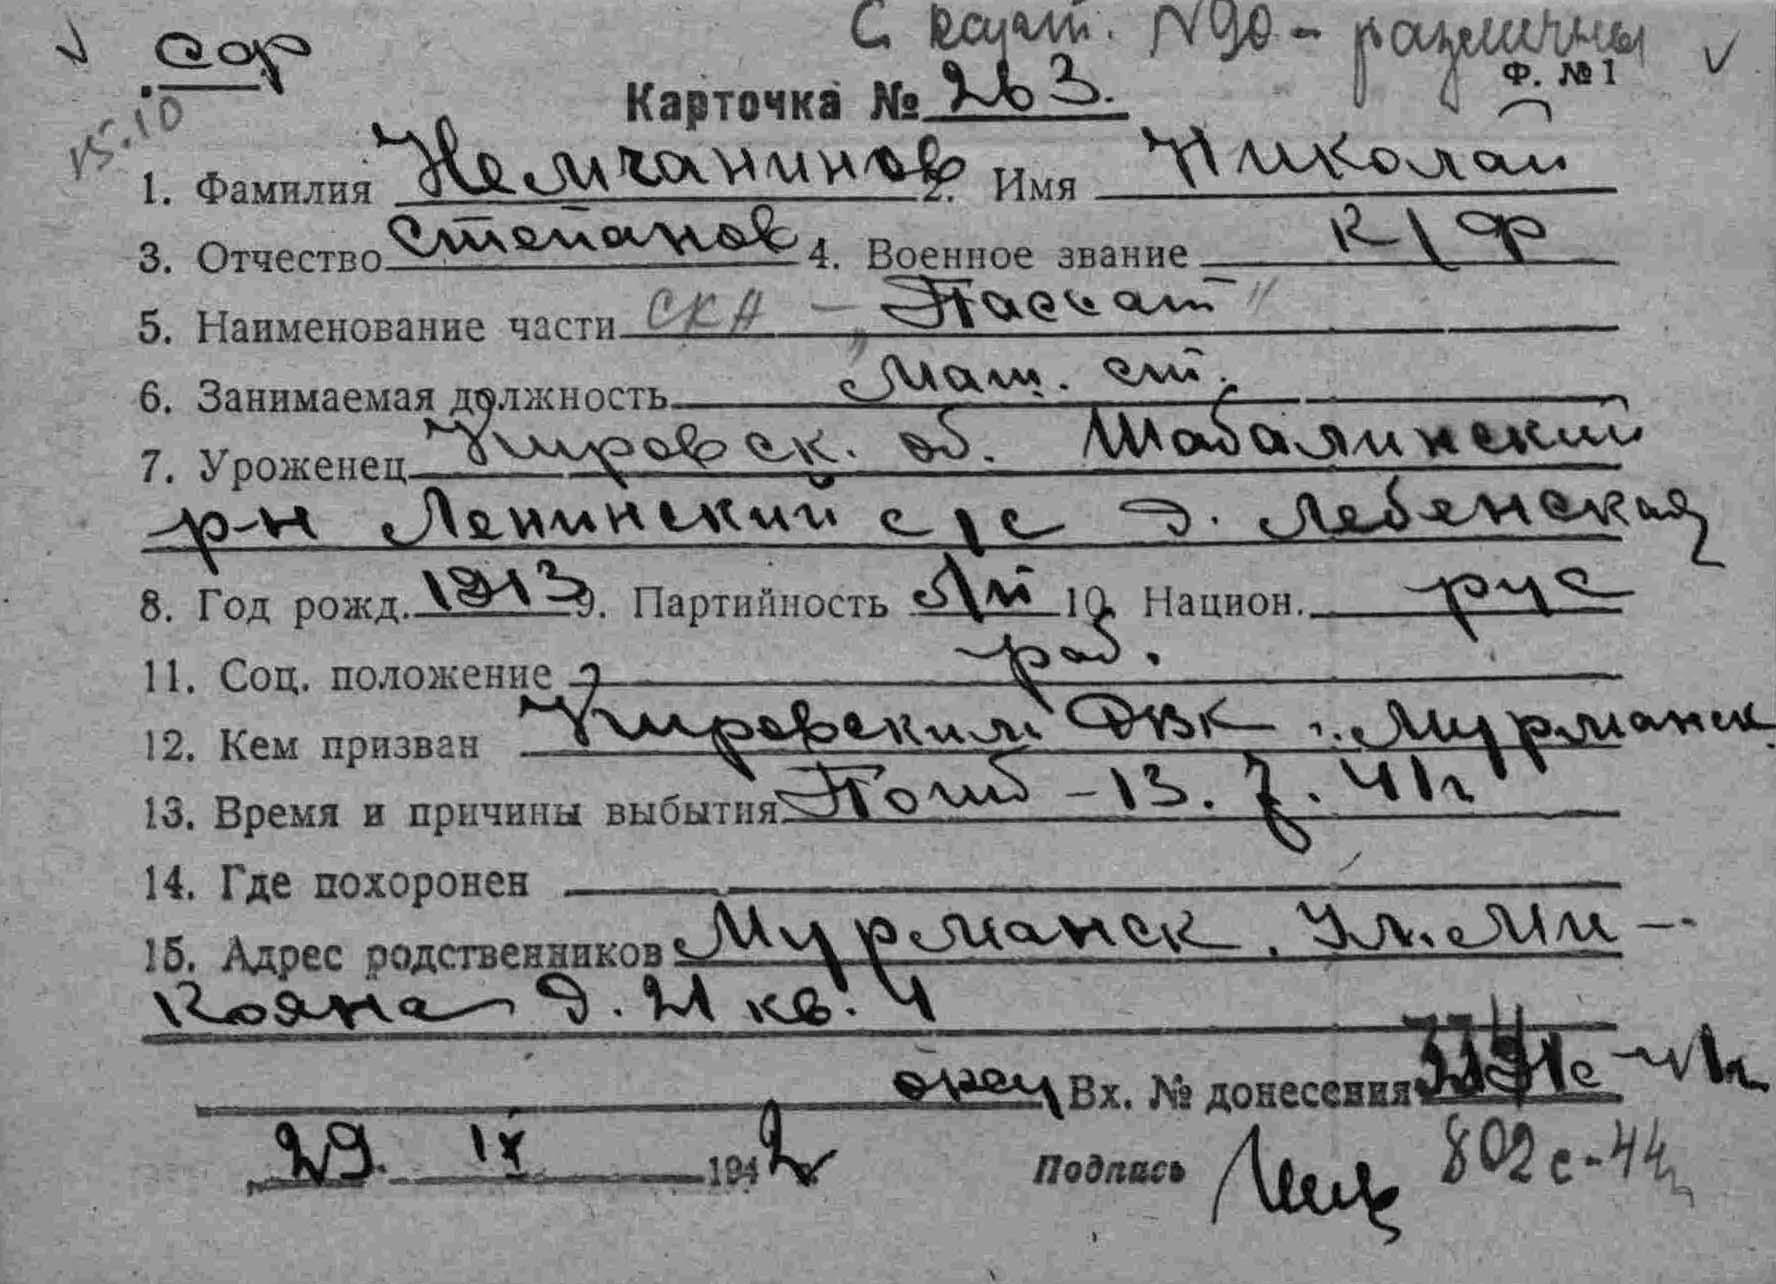 С карт. N90 - различны
сор
Ф. №1
Карточка № 263.
15.10
1. Фамилия Немчанинов 2. Имя Николай
3. Отчество Степанов 4. Военное звание к/ф
5. Наименование части СКА - „Пассат"
6. Занимаемая должность Маш. ст.
7. Уроженец Кировск. об. Шабалинский
р-н Ленинский с/с д. Лебенская
8. Год рожд. 1913 9. Партийность 10. Национ. рус
11. Соц. положение раб.
12. Кем призван Кировским РВК г. Мурманск
13. Время и причины выбытия Погиб - 13. 7. 41г
14. Где похоронен
15. Адрес родственников Мурманск. Ул. Ми-
кояна д. 21 кв. 4
Вх. № донесения
29. IX 1942
Подпись 802с-44г